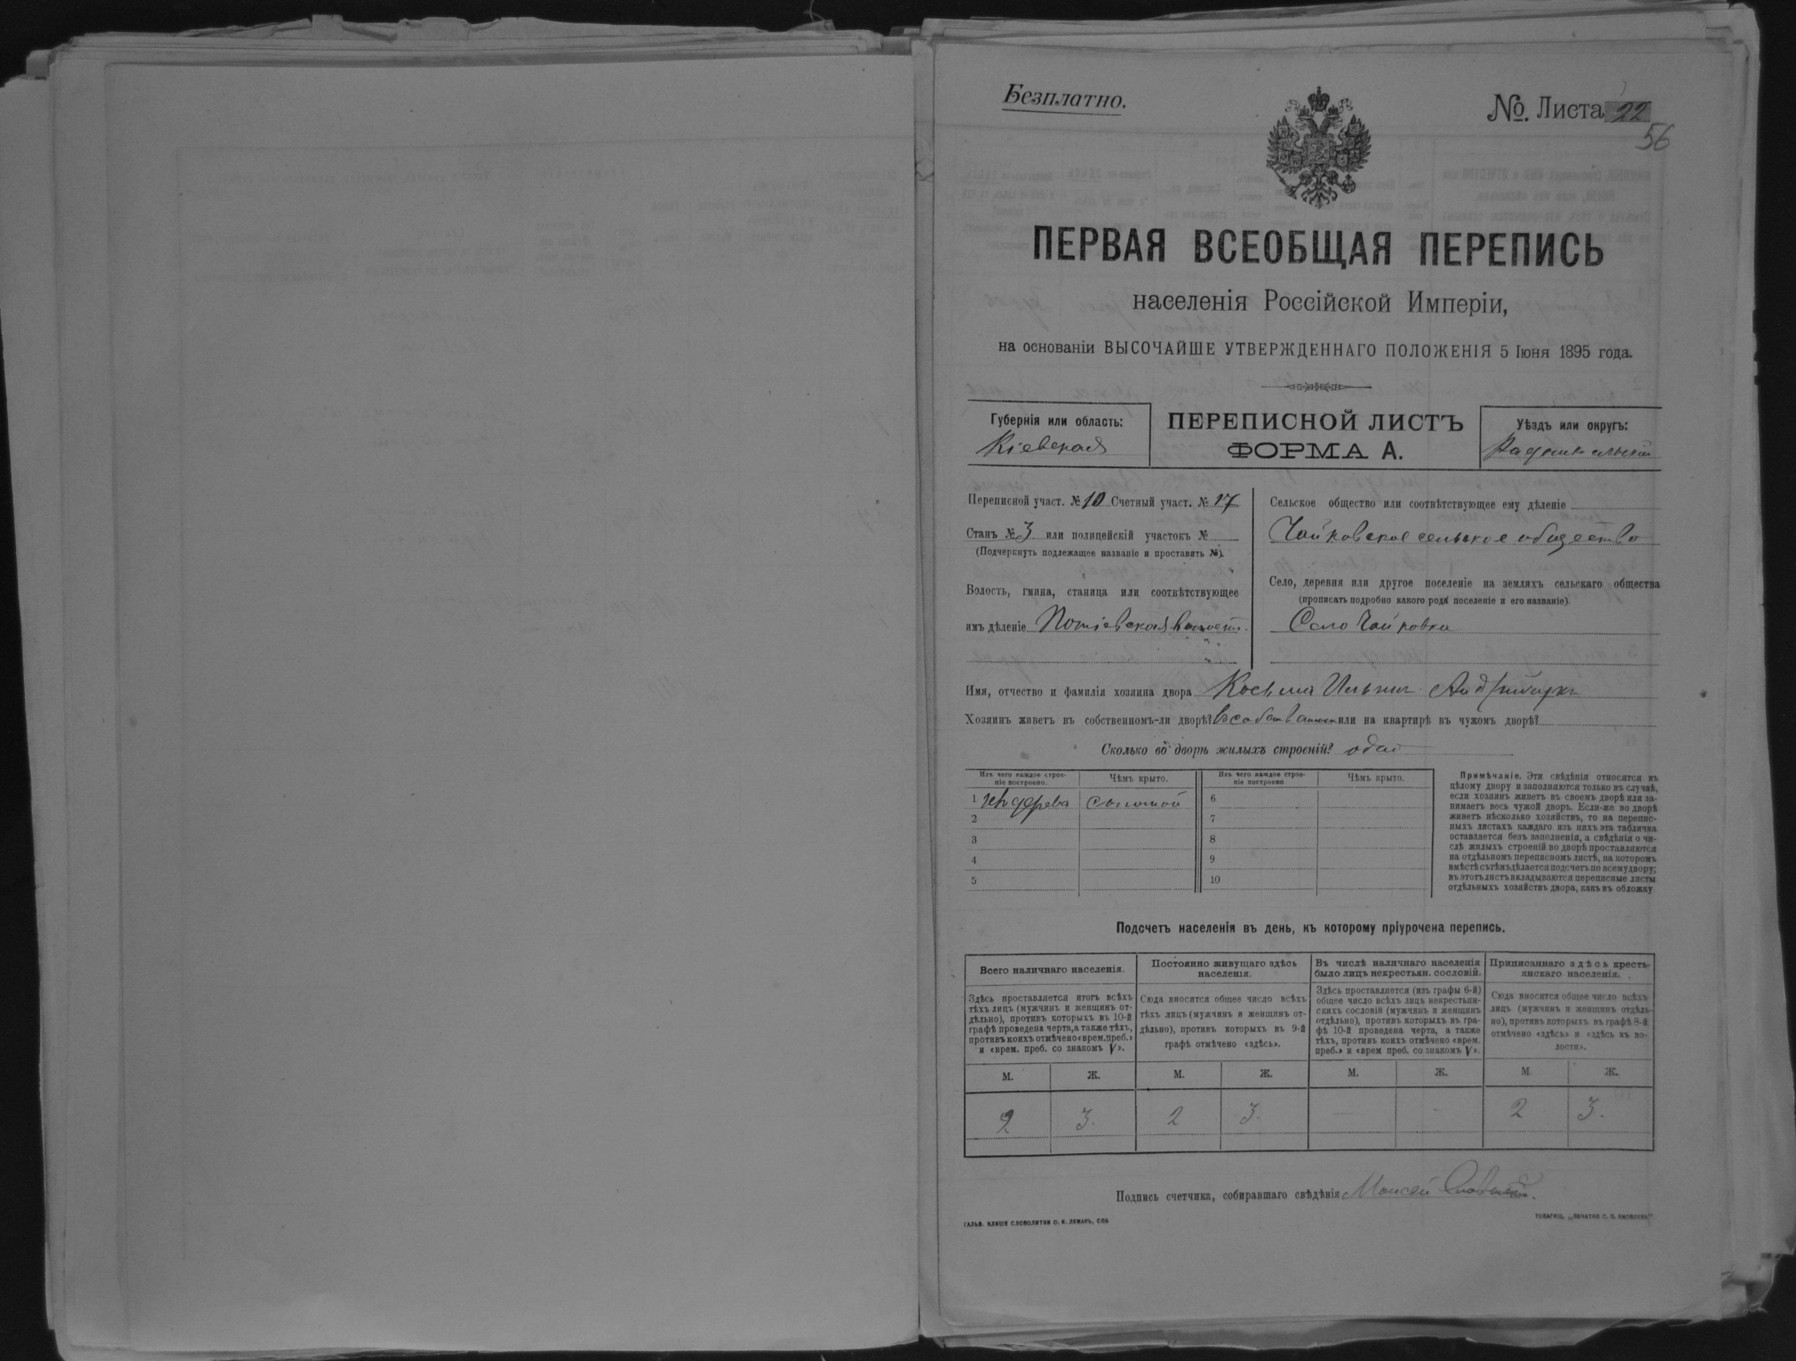 Безплатно.
№. Листа 22
56
ПЕРВАЯ ВСЕОБЩАЯ ПЕРЕПИСЬ
населенія Россійской Имперіи,
на основаніи ВЫСОЧАЙШЕ УТВЕРЖДЕННАГО ПОЛОЖЕНІЯ 5 Іюня 1895 года.
Губернія или область:
Кіевская
ПЕРЕПИСНОЙ ЛИСТЪ
ФОРМА А.
Уѣздъ или округъ:
Переписной участ. № 10 Счетный участ. № 17
Станъ № 3 или полицейскій участокъ №
(Подчеркнуть подлежащее названіе и проставить №).
Волость, гмина, станица или соотвѣтствующее
имъ дѣленіе
Сельское общество или соотвѣтствующее ему дѣленіе
Чайковское сельское общество
Село, деревня или другое поселеніе на земляхъ сельскаго общества
(прописать подробно какого рода поселеніе и его названіе)
Село Чайковка
Имя, отчество и фамилія хозяина двора Косьма Ильинъ
Хозяинъ живетъ въ собственномъ-ли дворѣ? или на квартирѣ въ чужомъ дворѣ?
Сколько во дворѣ жилыхъ строеній? одно
Изъ чего каждое строе-
ніе построено.
Чѣмъ крыто.
Изъ чего каждое строе-
ніе построено.
Чѣмъ крыто.
1 изъ дерева соломой
2
3
4
5
6
7
8
9
10
Примѣчаніе. Эти свѣдѣнія относятся къ
цѣлому двору и заполняются только въ случаѣ,
если хозяинъ живетъ въ своемъ дворѣ или за-
нимаетъ весь чужой дворъ. Если-же во дворѣ
живетъ нѣсколько хозяйствъ, то на перепис-
ныхъ листахъ каждаго изъ нихъ эта табличка
оставляется безъ заполненія, а свѣдѣнія о чи-
слѣ жилыхъ строеній во дворѣ проставляются
на отдѣльномъ переписномъ листѣ, на которомъ
вмѣстѣ съ тѣмъ дѣлается подсчетъ по всему двору;
въ этотъ листъ вкладываются переписные листы
отдѣльныхъ хозяйствъ двора, какъ въ обложку
Подсчетъ населенія въ день, къ которому пріурочена перепись.
Всего наличнаго населенія.
Здѣсь проставляется итогъ всѣхъ
тѣхъ лицъ (мужчинъ и женщинъ от-
дѣльно), противъ которыхъ въ 10-й
графѣ проведена черта, а также тѣхъ,
противъ коихъ отмѣчено «врем. преб.»
и «врем. преб. со знакомъ V».
Постоянно живущаго здѣсь
населенія.
Сюда вносится общее число всѣхъ
тѣхъ лицъ (мужчинъ и женщинъ от-
дѣльно), противъ которыхъ въ 9-й
графѣ отмѣчено «здѣсь».
Въ числѣ наличнаго населенія
было лицъ некрестьян. сословій.
Здѣсь проставляется (изъ графы 6-й)
общее число всѣхъ лицъ некрестьян-
скихъ сословій (мужчинъ и женщинъ
отдѣльно), противъ которыхъ въ гра-
фѣ 10-й проведена черта, а также
тѣхъ, противъ коихъ отмѣчено «врем.
преб.» и «врем преб. со знакомъ V».
Приписаннаго здѣсь кресть-
янскаго населенія.
Сюда вносится общее число всѣхъ
лицъ (мужчинъ и женщинъ отдѣль-
но), противъ которыхъ въ графѣ 8-й
отмѣчено «здѣсь» и «здѣсь къ во-
лости».
М. Ж. М. Ж. М. Ж. М. Ж.
2 3. 2 3. — - 2 3.
Подпись счетчика, собиравшаго свѣдѣнія Моисей
ГАЛЬВ. КЛИШЕ СЛОВОЛИТНИ О. И. ЛЕМАНЪ, СПБ
ТОВАРИЩ. „ПЕЧАТНЯ С. П. ЯКОВЛЕВА"